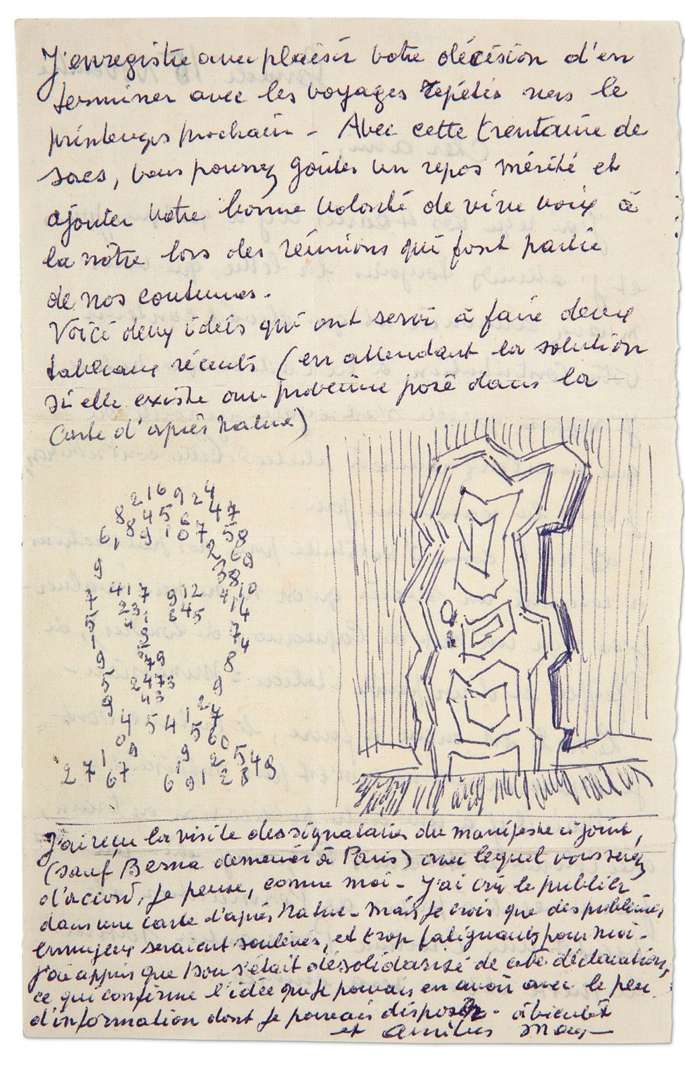 J'enregistre avec plaisir votre décision d'en
terminer avec les voyages répétés vers le
printemps prochain - Avec cette trentaine de
sacs, vous pourrez goûter un repos mérité et
ajouter votre bonne volonté de vive voix à
la nôtre lors des réunions qui font partie
de nos coutumes.
Voici deux idées qui ont servi à faire deux
tableaux récents (en attendant la solution
si elle existe au problème posé dans la
Carte d'après Nature)
216924
8 45 6 47
6,89 107 58
2 6
9 38 9
7 417 912 4 10
5 231 645 14
1 7
9 379 4
5 2473 8
9 43 9
4 5 4 1 2 7
1 0 9 9 5 60
2 7 67 6 9 1 2 8 5 4 9
J'ai reçu la visite des signataires du manifeste ci-joint,
(sauf Berna demeuré à Paris) avec lequel vous serez
d'accord, je pense, comme moi - J'ai cru le publier
dans une carte d'après Nature - Mais je crois que des problèmes
ennuyeux seraient soulevés, et trop fatiguants pour moi -
J'ai appris que s'était désolidarisé de cette déclaration,
ce qui confirme l'idée que je pouvais en avoir avec le peu
d'information dont je pouvais disposer - à bientôt
et amitiés Mag